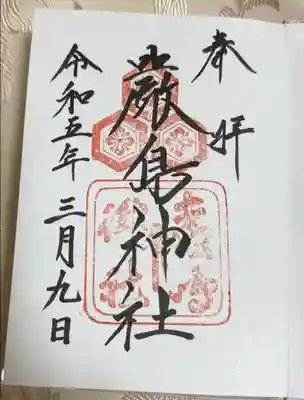 奉拝
嚴島神社
令和五年三月九日